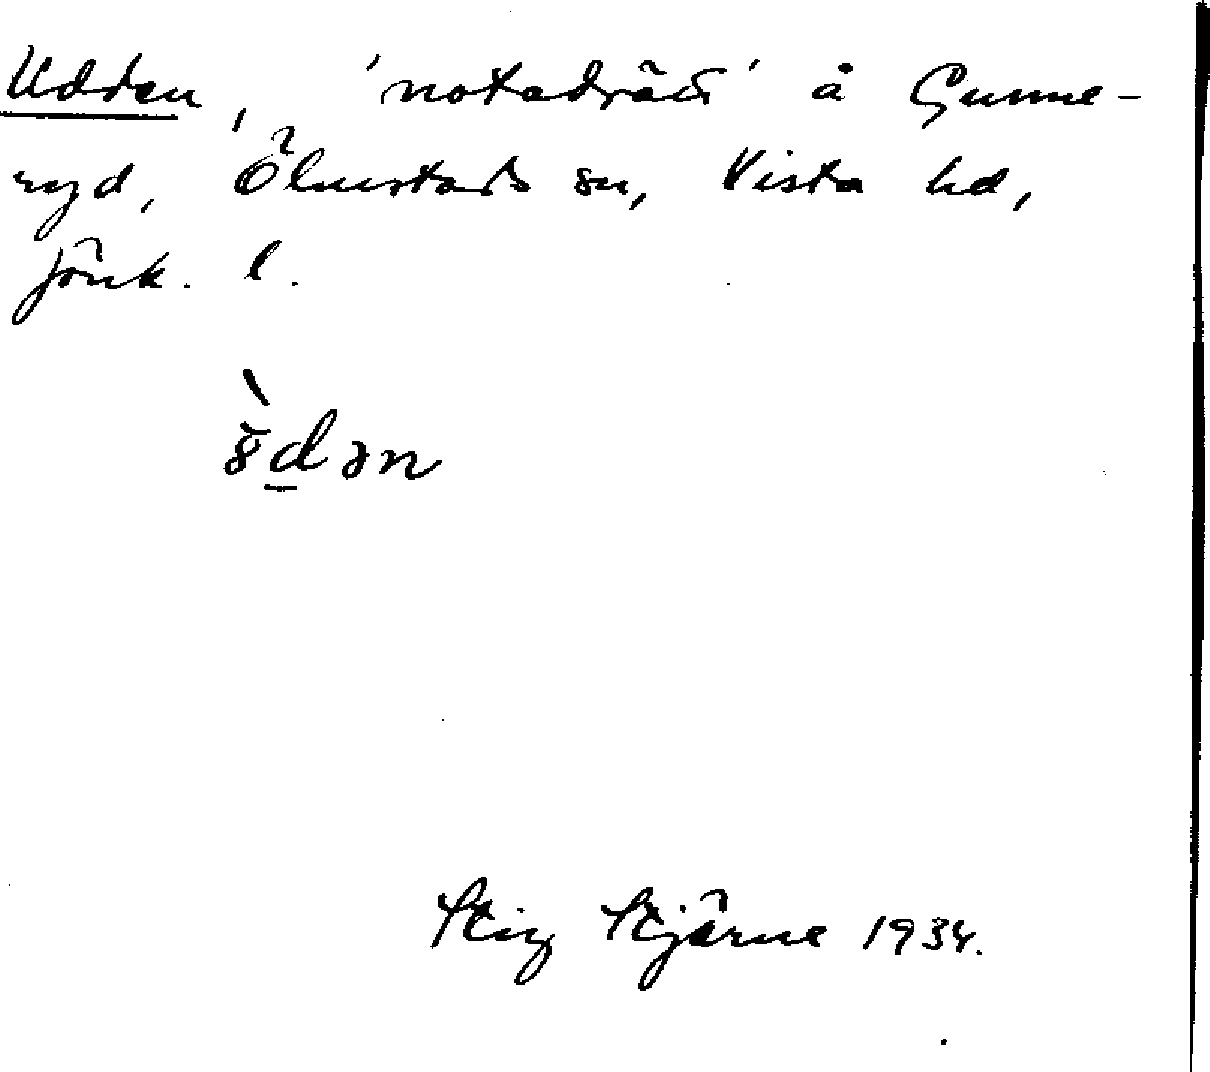 Udden, 'notadrätt' å Gunne-
ryd, Ölmstads sn, Vista hd,
Jönk. l.
ədən
Stig Stjärne 1934.